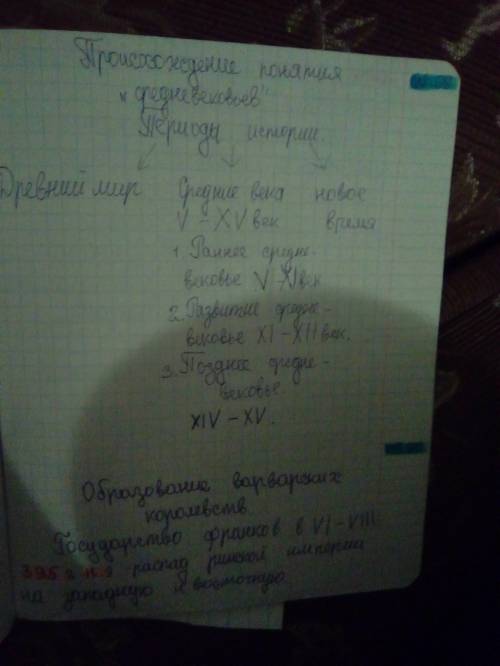 Происхождение понятия
"средневековьев"
Периоды истории.
Древний мир Средние века новое
V – XV век время
1. Раннее средне-
вековье V – XI век
2. Развитие средне-
вековье XI – XIII век.
3. Позднее средне-
вековье.
XIV – XV.
Образование варварских
королевств.
Государство франков в VI – VIII
395 г н.э распад римской империи
на западную и восточную.